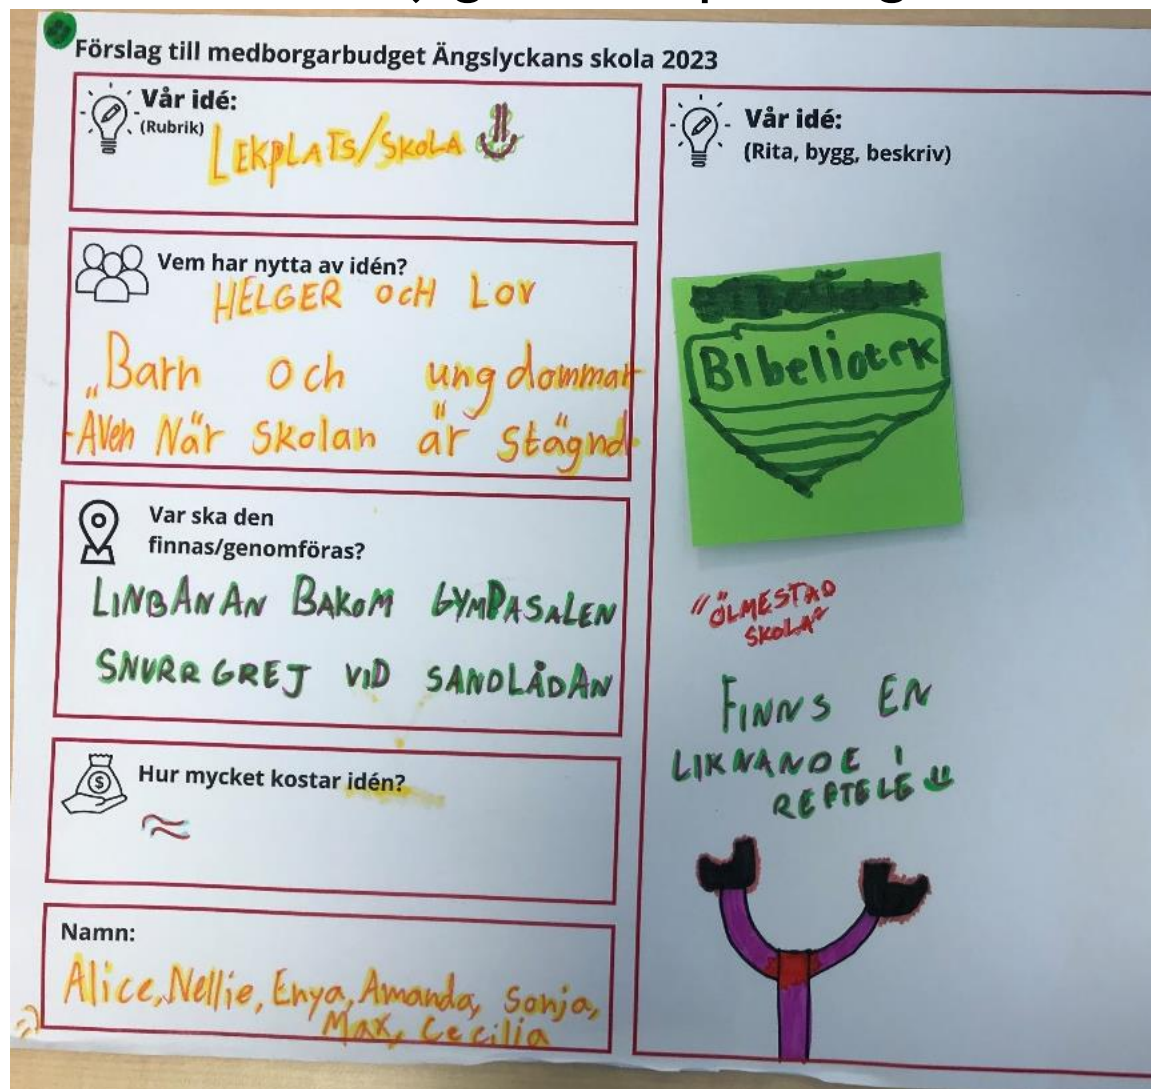 Förslag till medborgarbudget Ängslyckans skola 2023
Vår idé:
(Rubrik)
LEKPLATS/SKOLA
Vem har nytta av idén?
HELGER OCH LOV
Barn och ungdommar
Även När skolan är stägnd.
Var ska den
finnas/genomföras?
LINBANAN BAKOM GYMPASALEN
SNURRGREJ VID SANDLÅDAN
Hur mycket kostar idén?
≈
Namn:
Alice, Nellie, Enya, Amanda, Sonja,
Max, Cecilia
Vår idé:
(Rita, bygg, beskriv)
Bibeliotek
"ÖLMESTAD
SKOLA"
FINNS EN
LIKNANDE I
REFTELE